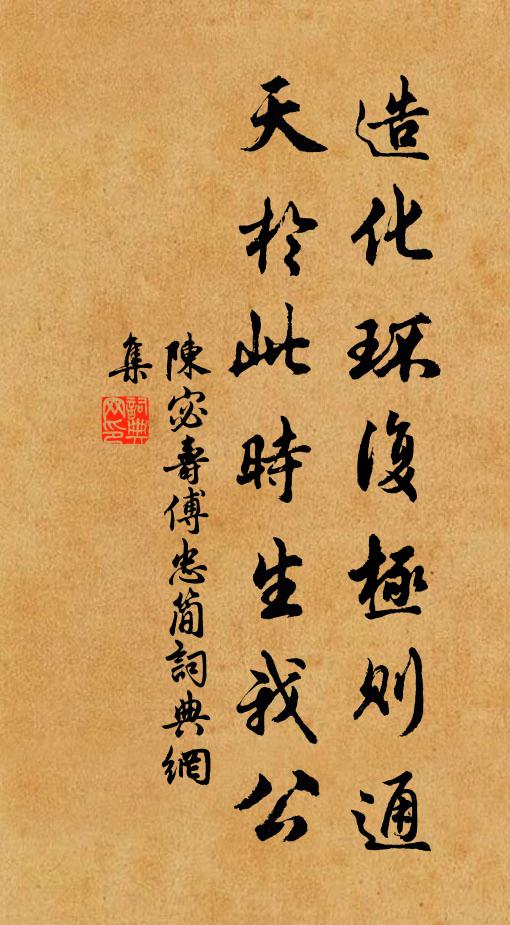 造化环復極則通
天於此時生我公
陳宓壽傅忠簡詞典網
集
詞典網印